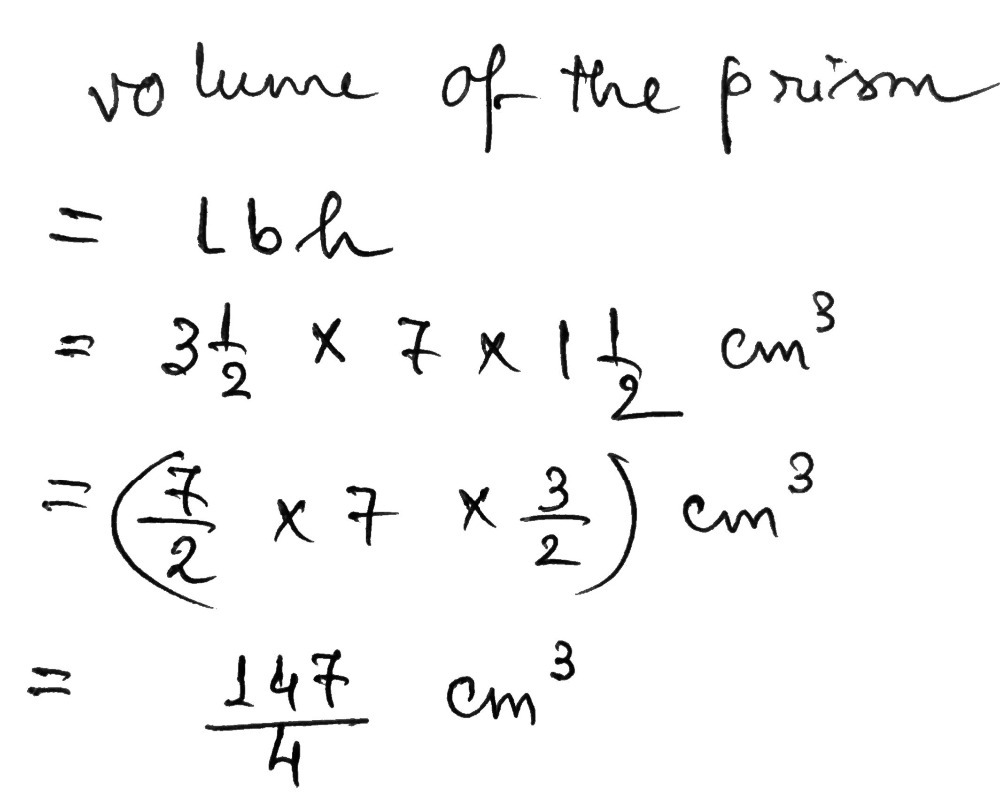 volume of the prism
= lbh
= 3 1/2 × 7 × 1 1/2 cm³
= (7/2 × 7 × 3/2) cm³
= 147/4 cm³